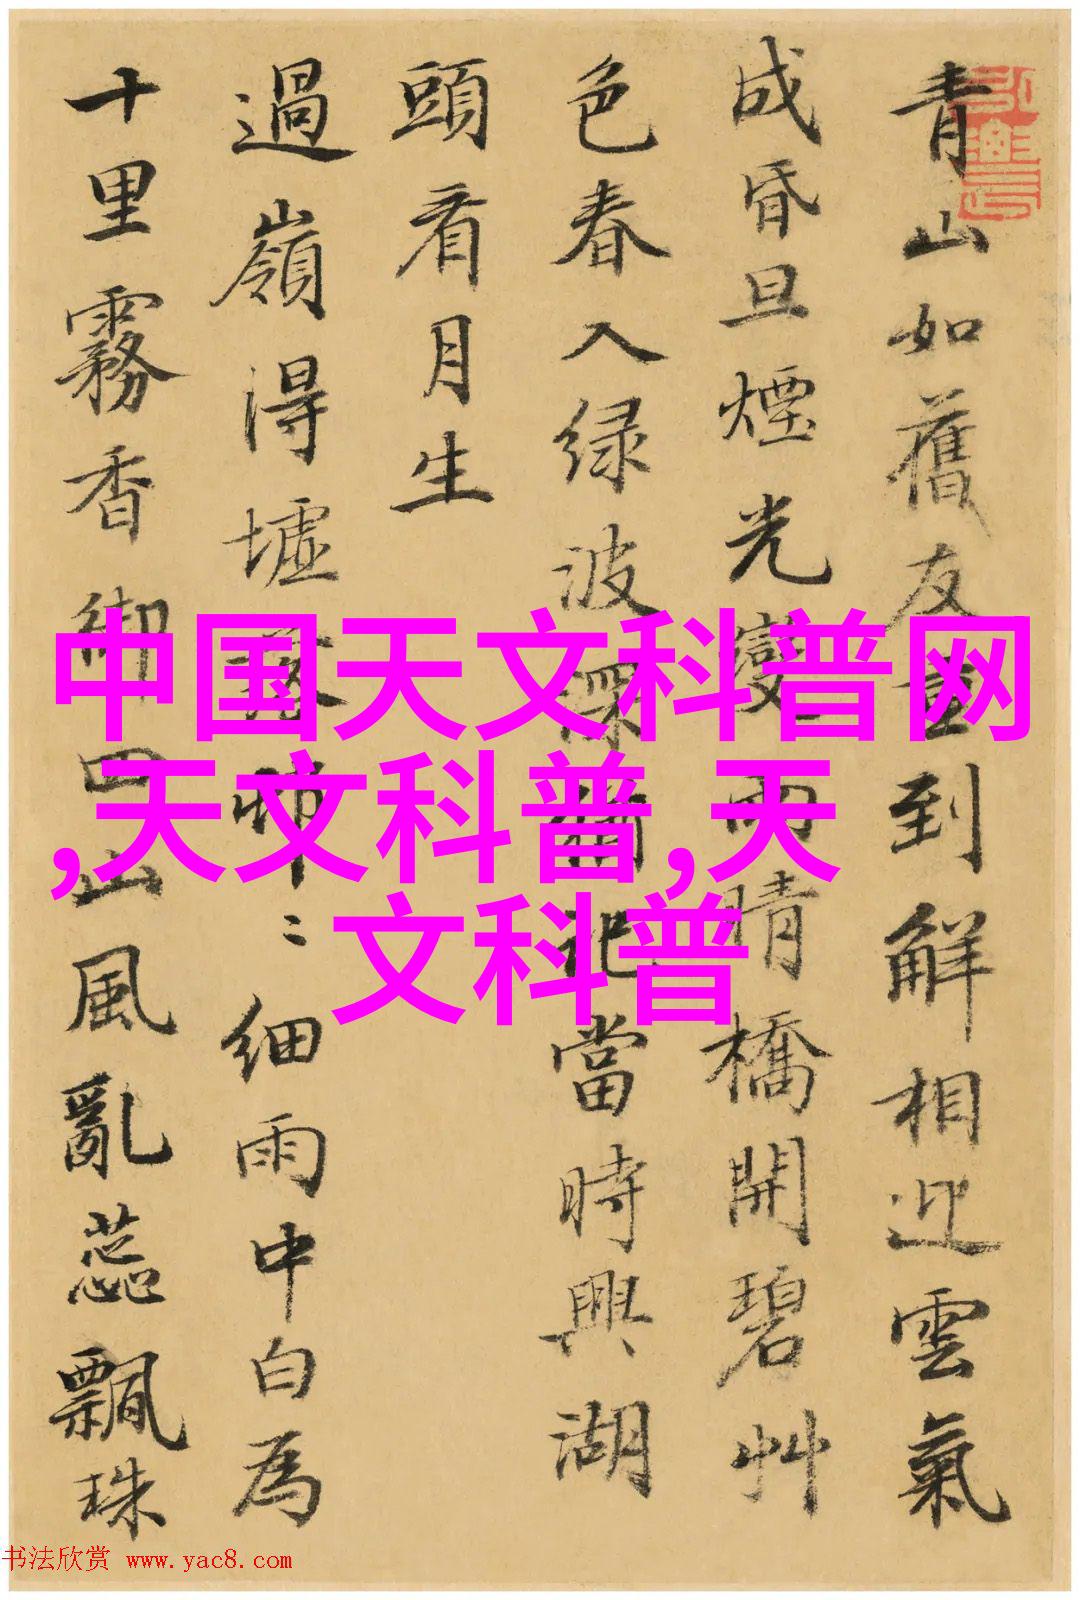 青山如舊友重到解相迎雲氣
成昏旦煙光變雨晴橋開碧艸
色春入绿波深當時興湖
頭看月生
過嶺得墟落細雨中白為
十里霧香御四山風亂蕊飄珠
中国天文科普网
,天文科普,天
文科普
书法欣赏 www.yac8.com